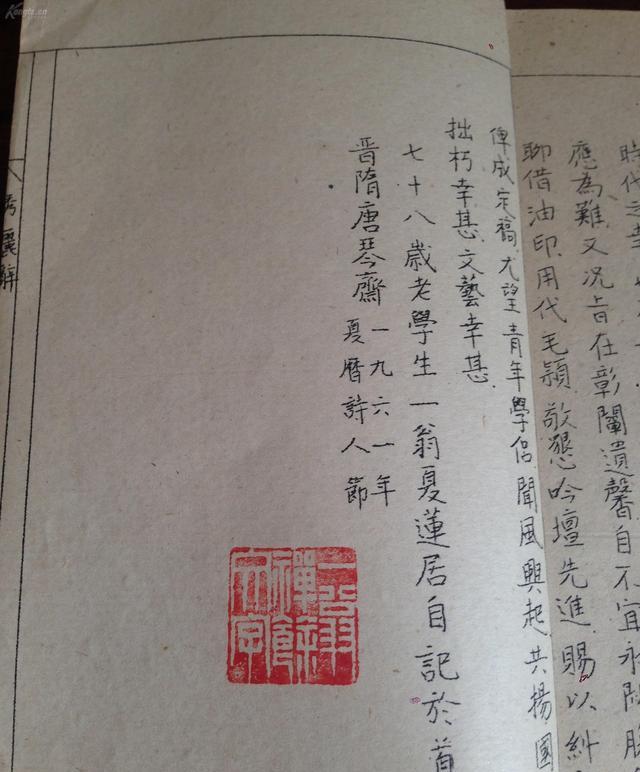 時代之
應為難又況旨在彰闡遺馨自不宜永
聊借油印用代毛穎敬懇吟壇先進賜以糾
俾成定稿尤望青年學侶聞風興起共揚國
拙朽幸甚文藝幸甚
七十八歲老學生一翁夏蓮居自記於首
晉隋唐琴齋
一九六一年
夏曆詩人節
一翁禪餘文字
麗